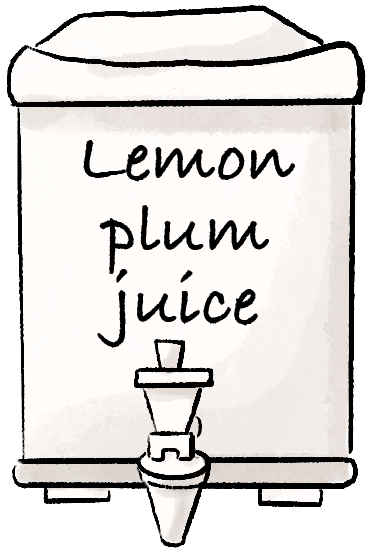 Lemon
plum
juice